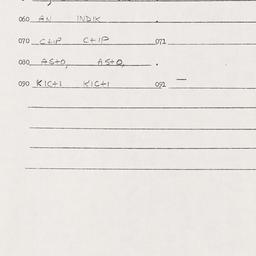 060 AN INDIK .
070 CHIP CHIP 071
080 ASTO, ASTO, .
090 KICHI KICHI 091 —